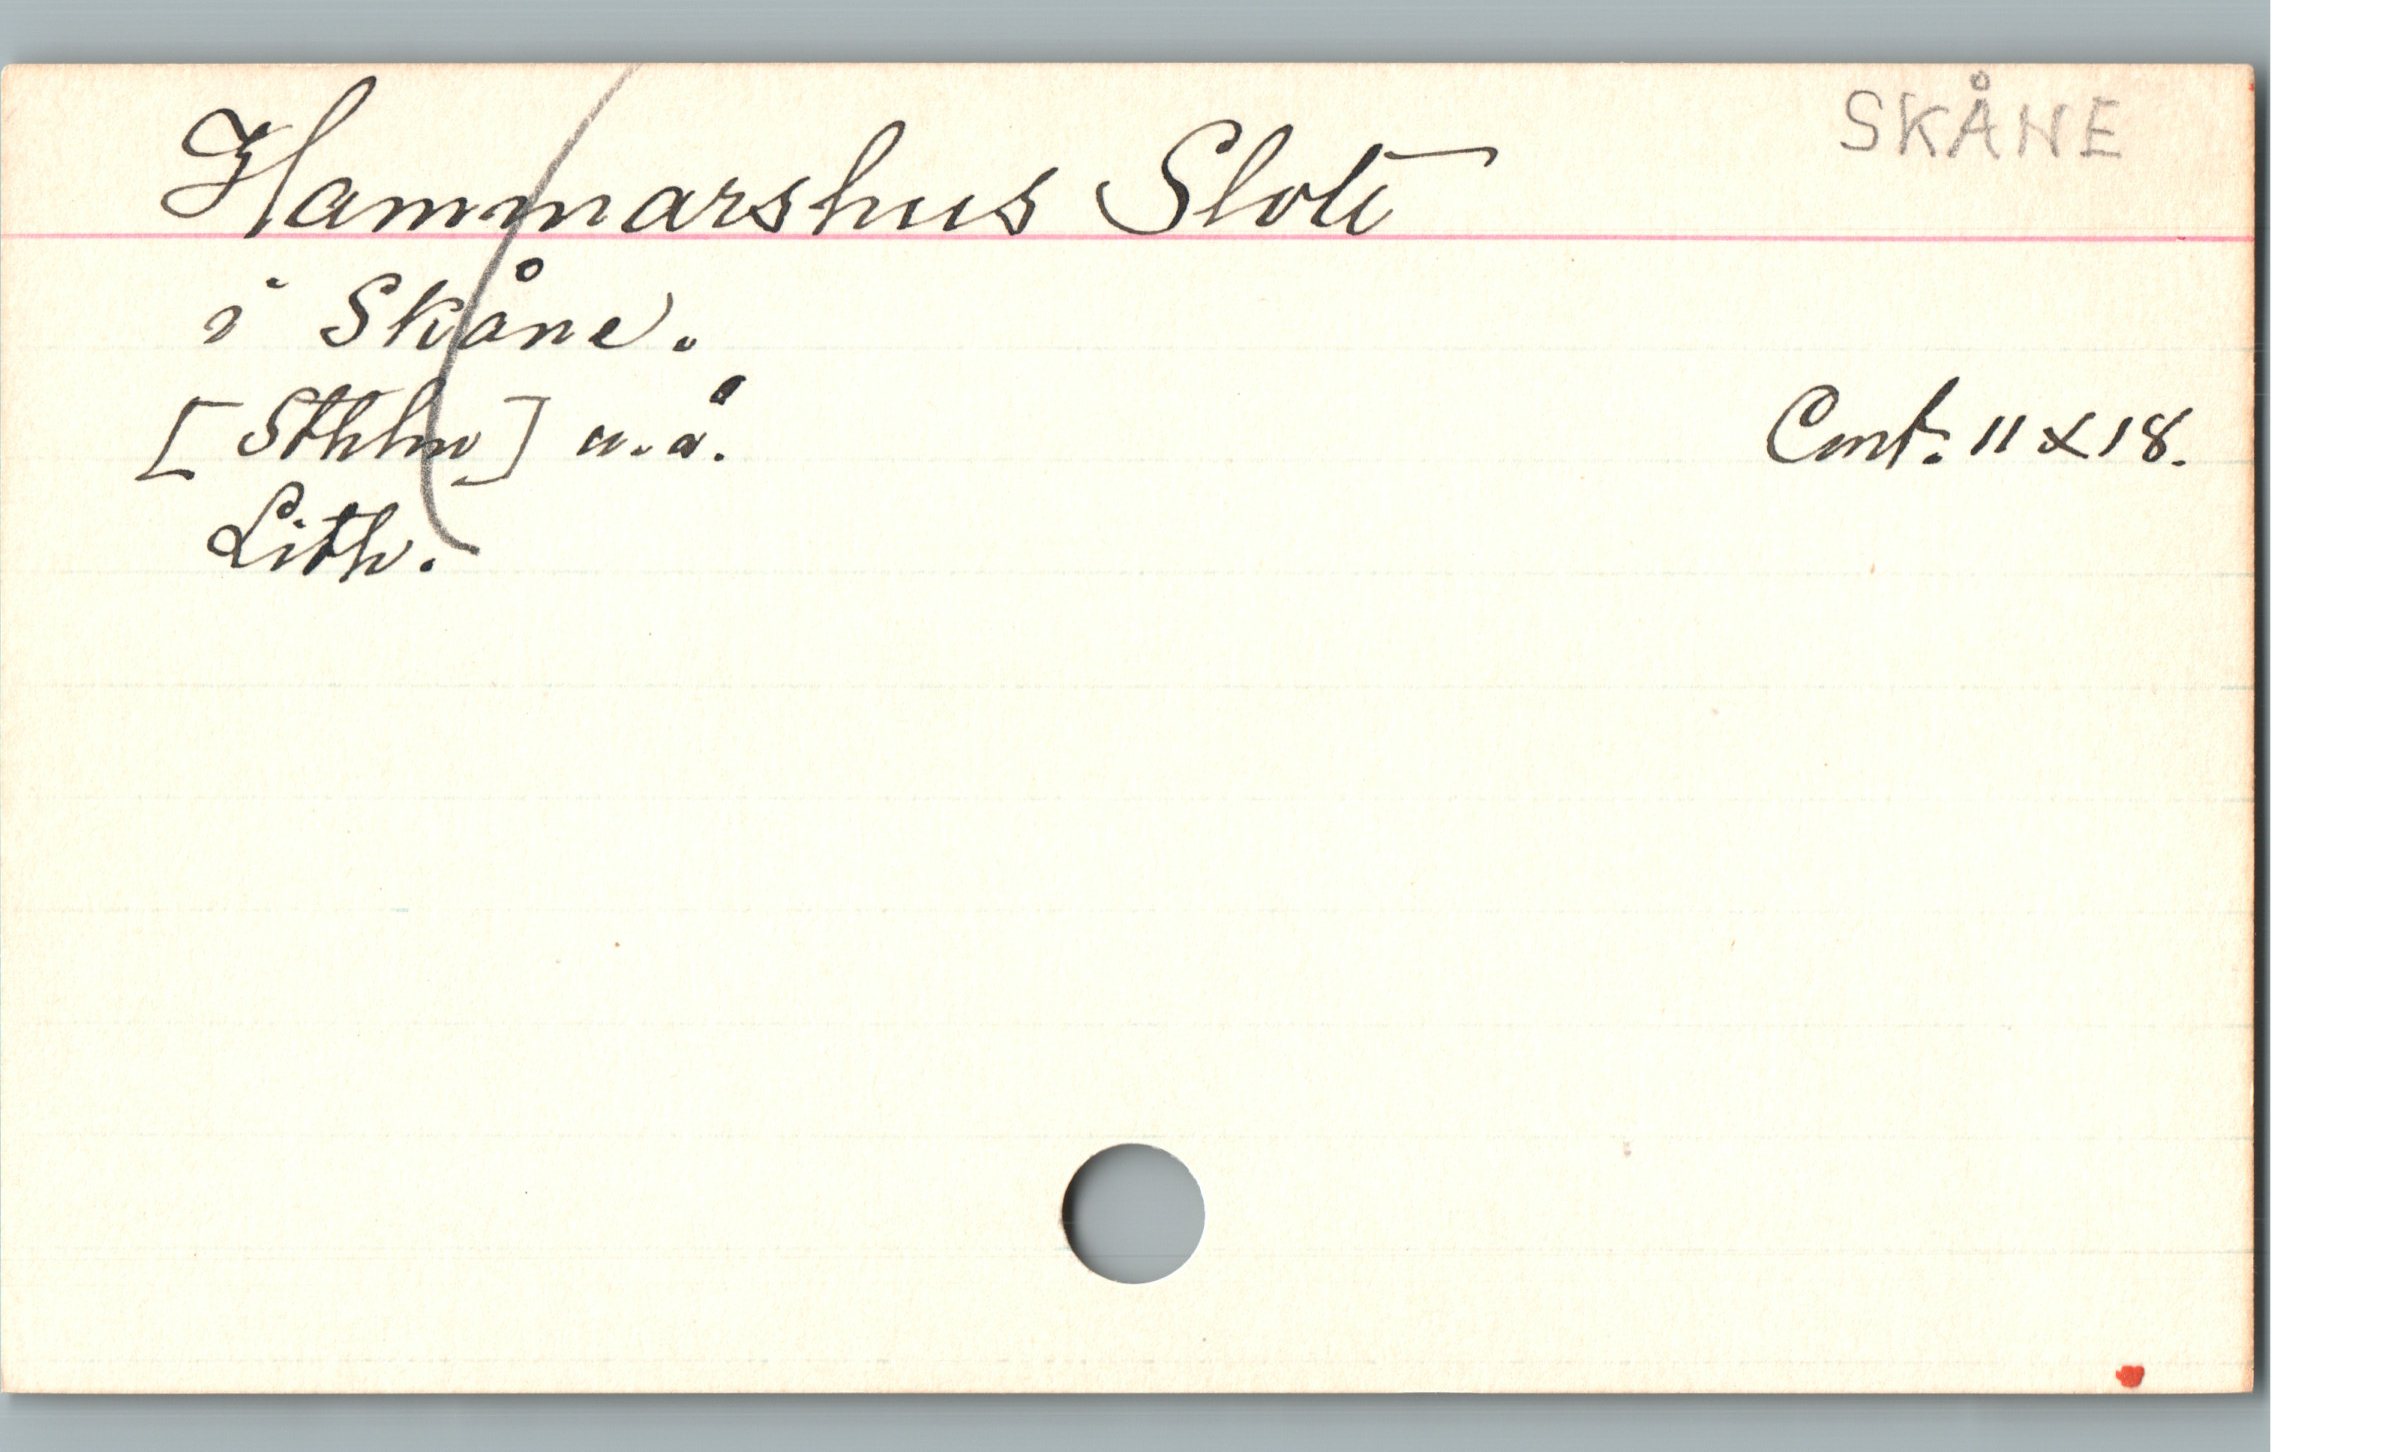 SKÅNE
Hammarshus Slott
i Skåne.
[Sthlm] u.å.
Cent. 11 x 18.
Lith.